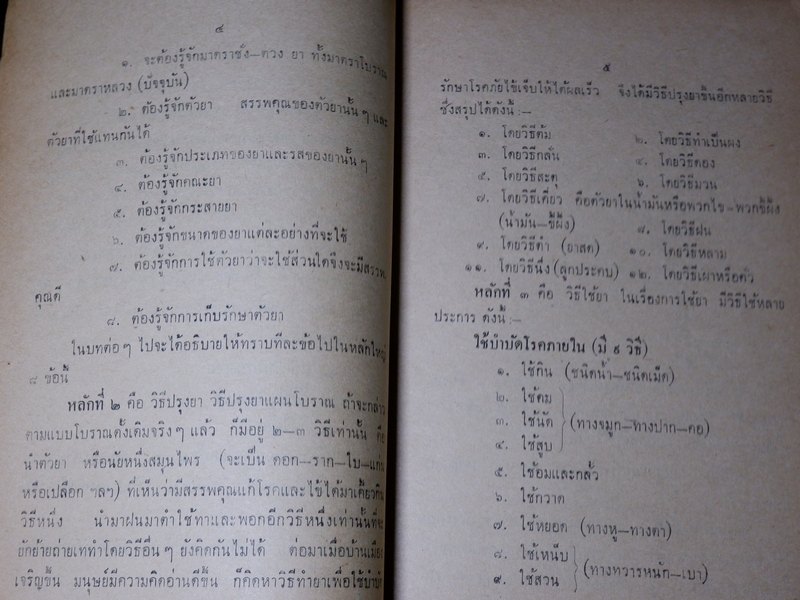 ๔
๑. จะต้องรู้จักมาตราชั่ง–ตวง ยา ทั้งมาตราโบราณ
และมาตราหลวง (ปัจจุบัน)
๒. ต้องรู้จักตัวยา สรรพคุณของตัวยานั้น ๆ และ
ตัวยาที่ใช้แทนกันได้
๓. ต้องรู้จักประเภทของยาและรสของยานั้น ๆ
๔. ต้องรู้จักคณะยา
๕. ต้องรู้จักกระสายยา
๖. ต้องรู้จักขนาดของยาแต่ละอย่างที่จะใช้
๗. ต้องรู้จักการใช้ตัวยาว่าจะใช้ส่วนใดจึงจะมีสรรพ
คุณดี
๘. ต้องรู้จักการเก็บรักษาตัวยา
ในบทต่อ ๆ ไปจะได้อธิบายให้ทราบทีละข้อไปในหลักใหญ่
๘ ข้อนี้
หลักที่ ๒ คือ วิธีปรุงยา วิธีปรุงยาแผนโบราณ ถ้าจะกล่าว
ตามแบบโบราณดั้งเดิมจริง ๆ แล้ว ก็มีอยู่ ๒–๓ วิธีเท่านั้น คือ
นำตัวยา หรือนัยหนึ่งสมุนไพร (จะเป็น ดอก–ราก–ใบ–แก่น
หรือเปลือก ฯลฯ) ที่เห็นว่ามีสรรพคุณแก้โรคและไข้ได้มาเคี้ยวกิน
วิธีหนึ่ง นำมาฝนมาตำใช้ทาและพอกอีกวิธีหนึ่งเท่านั้นที่จะ
ยักย้ายถ่ายเททำโดยวิธีอื่น ๆ ยังคิดกันไม่ได้ ต่อมาเมื่อบ้านเมือง
เจริญขึ้น มนุษย์มีความคิดอ่านดีขึ้น ก็คิดหาวิธีทำยาเพื่อใช้บำบัด
๕
รักษาโรคภัยไข้เจ็บให้ได้ผลเร็ว จึงได้มีวิธีปรุงยาขึ้นอีกหลายวิธี
ซึ่งสรุปได้ดังนี้ :—
๑. โดยวิธีต้ม ๒. โดยวิธีทำเป็นผง
๓. โดยวิธีกลั่น ๔. โดยวิธีดอง
๕. โดยวิธีสะตุ ๖. โดยวิธีมวน
๗. โดยวิธีเคี่ยว คือตัวยาในน้ำมันหรือพวกไข–พวกขี้ผึ้ง
(น้ำมัน–ขี้ผึ้ง) ๘. โดยวิธีฝน
๙. โดยวิธีตำ (ยาสด) ๑๐. โดยวิธีหลาม
๑๑. โดยวิธีนึ่ง (ลูกประคบ) ๑๒. โดยวิธีเผาหรือคั่ว
หลักที่ ๓ คือ วิธีใช้ยา ในเรื่องการใช้ยา มีวิธีใช้หลาย
ประการ ดังนี้ :—
ใช้บำบัดโรคภายใน (มี ๙ วิธี)
๑. ใช้กิน (ชนิดน้ำ–ชนิดเม็ด)
๒. ใช้ดม
๓. ใช้นัด (ทางจมูก–ทางปาก–คอ)
๔. ใช้สูบ
๕. ใช้อมและกลั้ว
๖. ใช้กวาด
๗. ใช้หยอด (ทางหู–ทางตา)
๘. ใช้เหน็บ
(ทางทวารหนัก–เบา)
๙. ใช้สวน